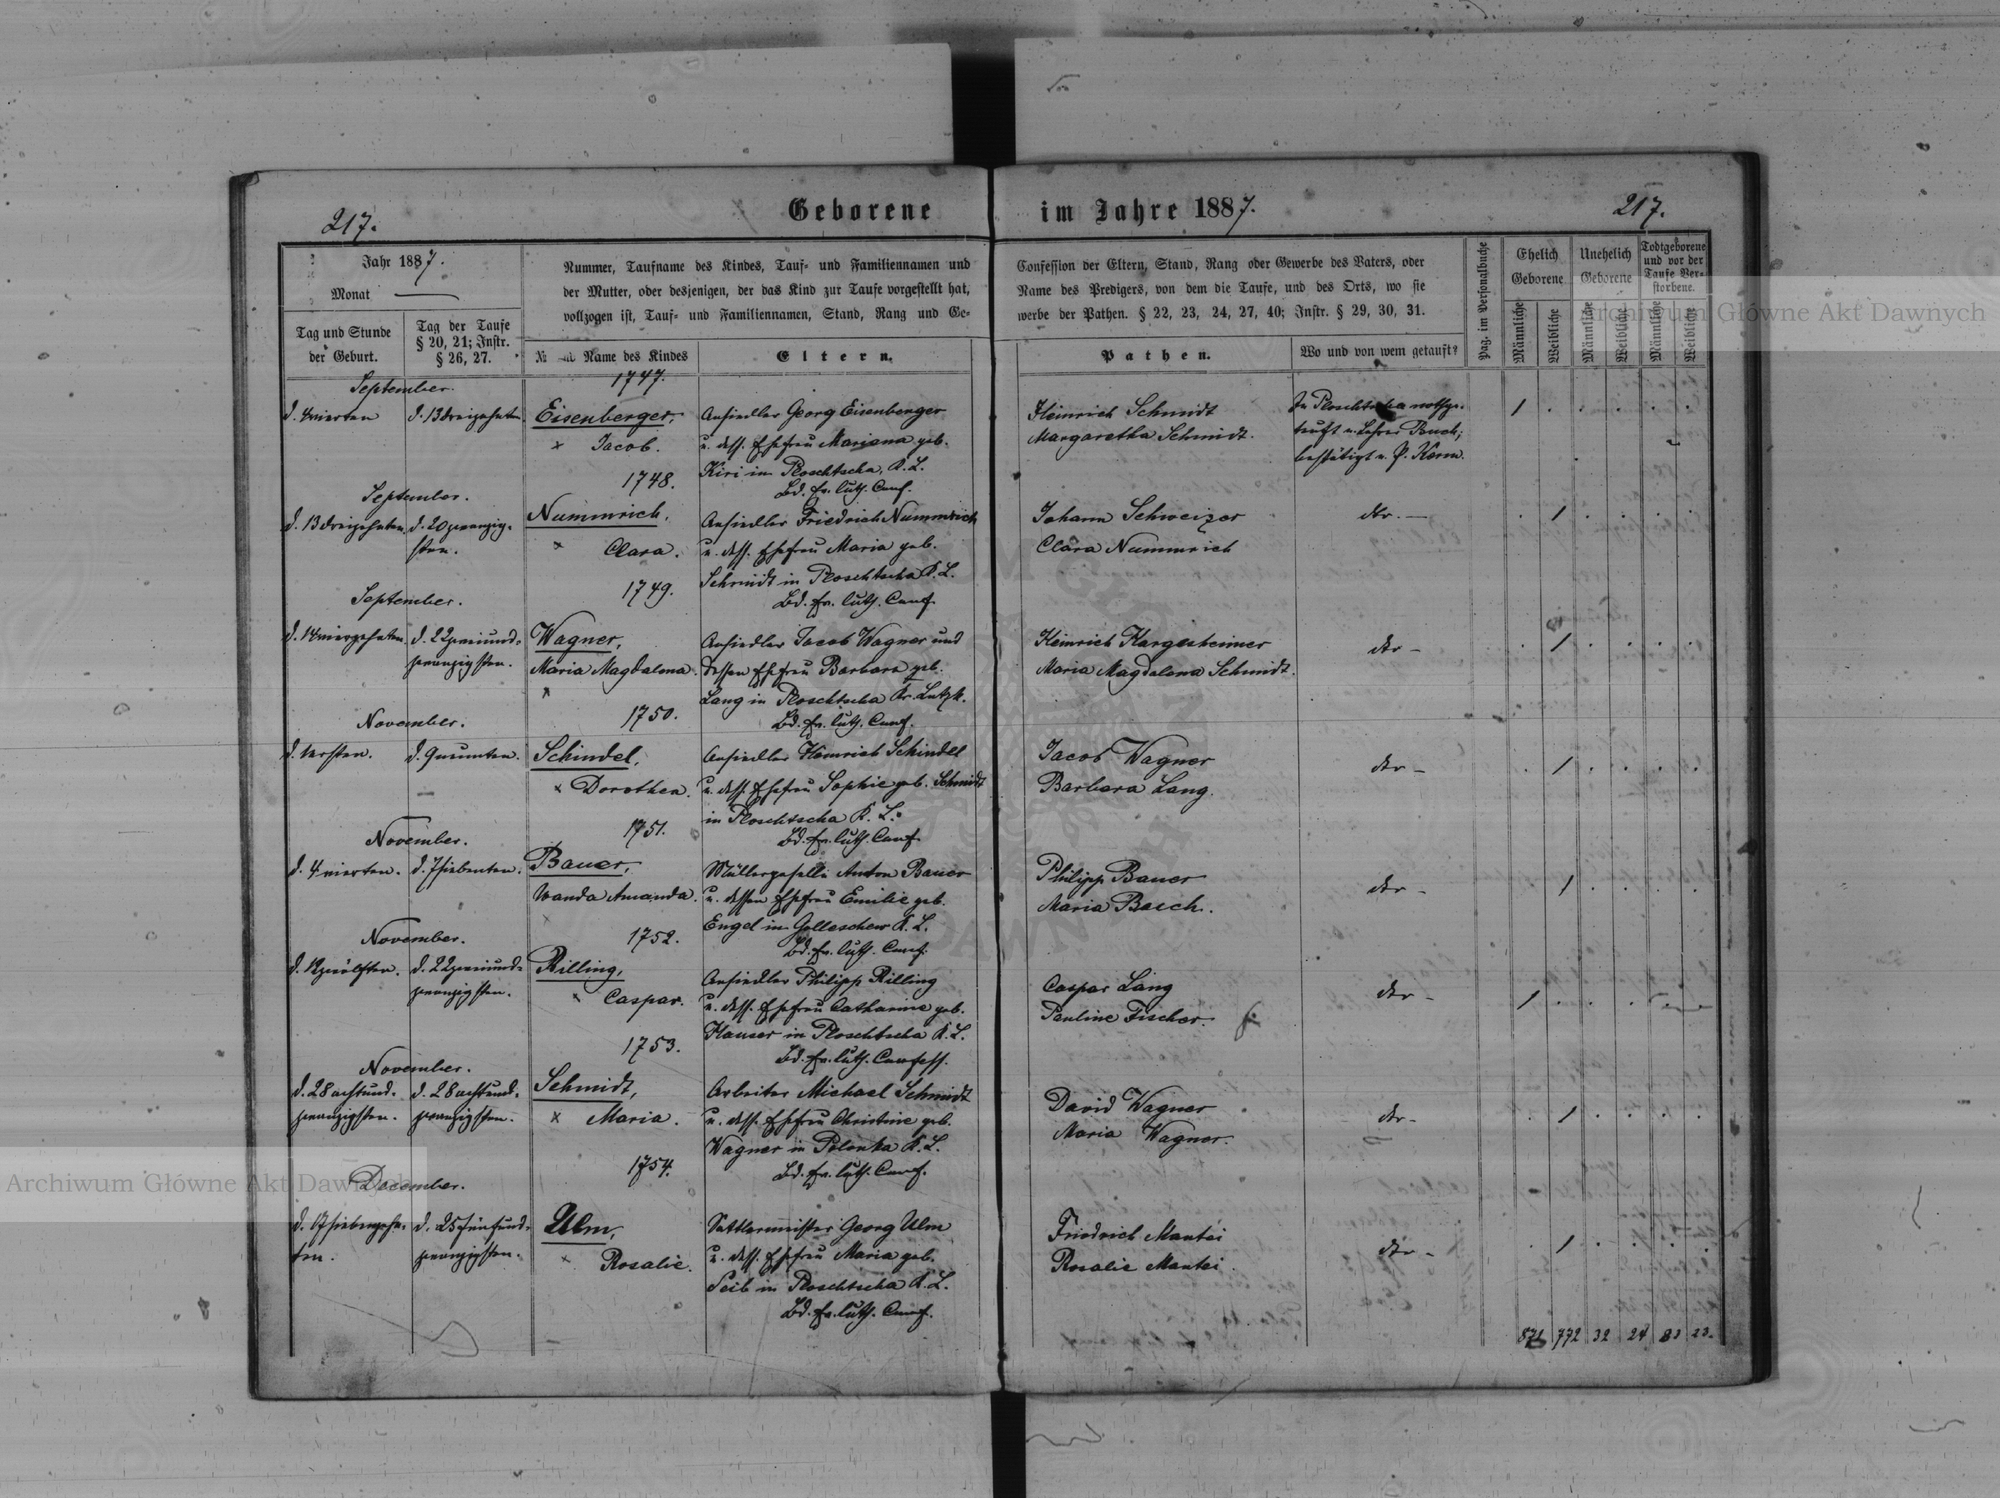 217.
Geborene
im Jahre 1887.
217.
Jahr 1887.
Monat
Tag und Stunde
der Geburt.
Tag der Taufe
§ 20, 21; Instr.
§ 26, 27.
Nummer, Taufname des Kindes, Tauf- und Familiennamen und
der Mutter, oder desjenigen, der das Kind zur Taufe vorgestellt hat,
vollzogen ist, Tauf- und Familiennamen, Stand, Rang und Ge-
№ und Name des Kindes
Eltern.
Confession der Eltern, Stand, Rang oder Gewerbe des Vaters, oder
Name des Predigers, von dem die Taufe, und des Orts, wo sie
werbe der Pathen. § 22, 23, 24, 27, 40; Instr. § 29, 30, 31.
Pathen.
Wo und von wem getauft?
Pag. im Personalbuche
Ehelich
Geborene
Unehelich
Geborene
Todtgeborene
und vor der
Taufe Ver-
storbene.
Männliche
Weibliche
Männliche
Weibliche
Männliche
Weibliche
September.
1747.
d. 4 vierten
d. 13 dreizehnten
Eisenberger,
× Jacob.
Ansiedler Georg Eisenberger
u. dess. Ehefrau Mariana geb.
Kiri in Ploschtscha, K. L.
Bd. ev. luth. Conf.
Heinrich Schmidt
Margaretha Schmidt.
In Ploschtscha nothge-
tauft v. Lehrer Bauch;
bestätigt v. P. Kerm.
September.
1748.
d. 13 dreizehnten
d. 20 zwanzig-
sten.
Nummrich,
× Clara.
Ansiedler Friedrich Nummrich
u. dess. Ehefrau Maria geb.
Schmidt in Ploschtscha K. L.
Bd. ev. luth. Conf.
Johann Schweizer
Clara Nummrich
dto. —
September.
1749.
d. 14 vierzehnten
d. 22 zweiund-
zwanzigsten.
Wagner,
Maria Magdalena.
×
Ansiedler Jacob Wagner und
dessen Ehefrau Barbara geb.
Lang in Ploschtscha Kr. Lutzk.
Bd. ev. luth. Conf.
Heinrich Hargesheimer
Maria Magdalena Schmidt.
dto —
November.
1750.
d. 1 ersten.
d. 9 neunten.
Schindel,
× Dorothea.
Ansiedler Heinrich Schindel
u. dess. Ehefrau Sophie geb. Schmidt
in Ploschtscha K. L.
Bd. ev. luth. Conf.
Jacob Wagner
Barbara Lang.
dto —
November.
1751.
d. 4 vierten.
d. 7 siebenten.
Bauer,
Wanda Amanda.
×
Müllergeselle Anton Bauer
u. dessen Ehefrau Emilie geb.
Engel in Golleschew K. L.
Bd. ev. luth. Conf.
Philipp Bauer
Maria Basch.
dto —
November.
1752.
d. 12 zwölften.
d. 22 zweiund-
zwanzigsten.
Rilling,
× Caspar.
Ansiedler Philipp Rilling
u. dess. Ehefrau Catharine geb.
Hauser in Ploschtscha K. L.
Bd. ev. luth. Confess.
Caspar Lang
Pauline Fischer.
dto —
November.
1753.
d. 28 achtund-
zwanzigsten.
d. 28 achtund-
zwanzigsten.
Schmidt,
× Maria.
Arbeiter Michael Schmidt
u. dess. Ehefrau Christine geb.
Wagner in Polonka K. L.
Bd. ev. luth. Conf.
David Wagner
Maria Wagner.
dto —
December.
1754.
d. 17 siebenzehn-
ten.
d. 25 fünfund-
zwanzigsten.
Ulm,
× Rosalie.
Sattlermeister Georg Ulm
u. dess. Ehefrau Maria geb.
Seib in Ploschtscha K. L.
Bd. ev. luth. Conf.
Friedrich Mantei
Rosalie Mantei.
dto —
772 32 24 23.
Archiwum Główne Akt Dawnych
Archiwum Główne Akt Dawnych